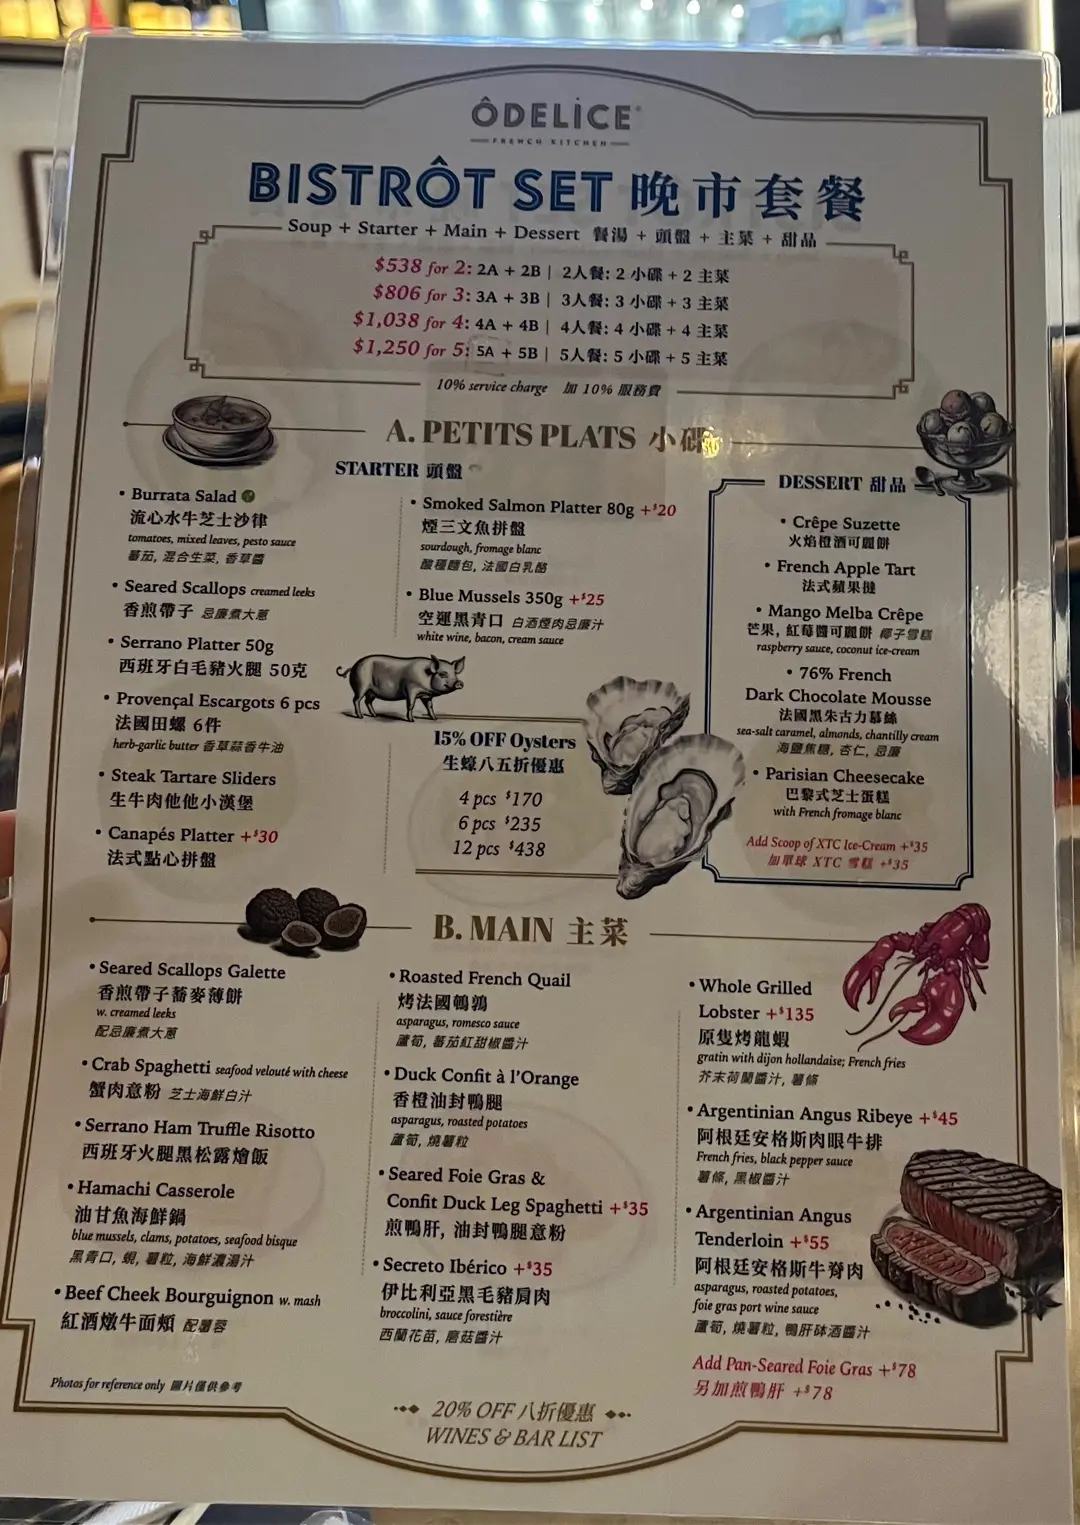 ÔDELİCE®
FRENCH KITCHEN
BISTRÔT SET 晚市套餐
Soup + Starter + Main + Dessert 餐湯 + 頭盤 + 主菜 + 甜品
$538 for 2: 2A + 2B | 2人餐: 2 小碟 + 2 主菜
$806 for 3: 3A + 3B | 3人餐: 3 小碟 + 3 主菜
$1,038 for 4: 4A + 4B | 4人餐: 4 小碟 + 4 主菜
$1,250 for 5: 5A + 5B | 5人餐: 5 小碟 + 5 主菜
10% service charge 加 10% 服務費
A. PETITS PLATS 小碟
STARTER 頭盤
• Burrata Salad
流心水牛芝士沙律
tomatoes, mixed leaves, pesto sauce
蕃茄, 混合生菜, 香草醬
• Seared Scallops creamed leeks
香煎帶子 忌廉煮大蔥
• Serrano Platter 50g
西班牙白毛豬火腿 50克
• Provençal Escargots 6 pcs
法國田螺 6件
herb-garlic butter 香草蒜香牛油
• Steak Tartare Sliders
生牛肉他他小漢堡
• Canapés Platter +$30
法式點心拼盤
• Smoked Salmon Platter 80g +$20
煙三文魚拼盤
sourdough, fromage blanc
酸種麵包, 法國白乳酪
• Blue Mussels 350g +$25
空運黑青口 白酒煙肉忌廉汁
white wine, bacon, cream sauce
15% OFF Oysters
生蠔八五折優惠
4 pcs $170
6 pcs $235
12 pcs $438
DESSERT 甜品
• Crêpe Suzette
火焰橙酒可麗餅
• French Apple Tart
法式蘋果撻
• Mango Melba Crêpe
芒果, 紅莓醬可麗餅 椰子雪糕
raspberry sauce, coconut ice-cream
• 76% French
Dark Chocolate Mousse
法國黑朱古力慕絲
sea-salt caramel, almonds, chantilly cream
海鹽焦糖, 杏仁, 忌廉
• Parisian Cheesecake
巴黎式芝士蛋糕
with French fromage blanc
Add Scoop of XTC Ice-Cream +$35
加單球 XTC 雪糕 +$35
B. MAIN 主菜
• Seared Scallops Galette
香煎帶子蕎麥薄餅
w. creamed leeks
配忌廉煮大蔥
• Crab Spaghetti seafood velouté with cheese
蟹肉意粉 芝士海鮮白汁
• Serrano Ham Truffle Risotto
西班牙火腿黑松露燴飯
• Hamachi Casserole
油甘魚海鮮鍋
blue mussels, clams, potatoes, seafood bisque
黑青口, 蜆, 薯粒, 海鮮濃湯汁
• Beef Cheek Bourguignon w. mash
紅酒燉牛面頰 配薯蓉
• Roasted French Quail
烤法國鵪鶉
asparagus, romesco sauce
蘆筍, 蕃茄紅甜椒醬汁
• Duck Confit à l'Orange
香橙油封鴨腿
asparagus, roasted potatoes
蘆筍, 燒薯粒
• Seared Foie Gras &
Confit Duck Leg Spaghetti +$35
煎鴨肝, 油封鴨腿意粉
• Secreto Ibérico +$35
伊比利亞黑毛豬肩肉
broccolini, sauce forestière
西蘭花苗, 磨菇醬汁
• Whole Grilled
Lobster +$135
原隻烤龍蝦
gratin with dijon hollandaise; French fries
芥末荷蘭醬汁, 薯條
• Argentinian Angus Ribeye +$45
阿根廷安格斯肉眼牛排
French fries, black pepper sauce
薯條, 黑椒醬汁
• Argentinian Angus
Tenderloin +$55
阿根廷安格斯牛脊肉
asparagus, roasted potatoes,
foie gras port wine sauce
蘆筍, 燒薯粒, 鴨肝砵酒醬汁
Add Pan-Seared Foie Gras +$78
另加煎鴨肝 +$78
Photos for reference only 圖片僅供參考
20% OFF 八折優惠
WINES & BAR LIST